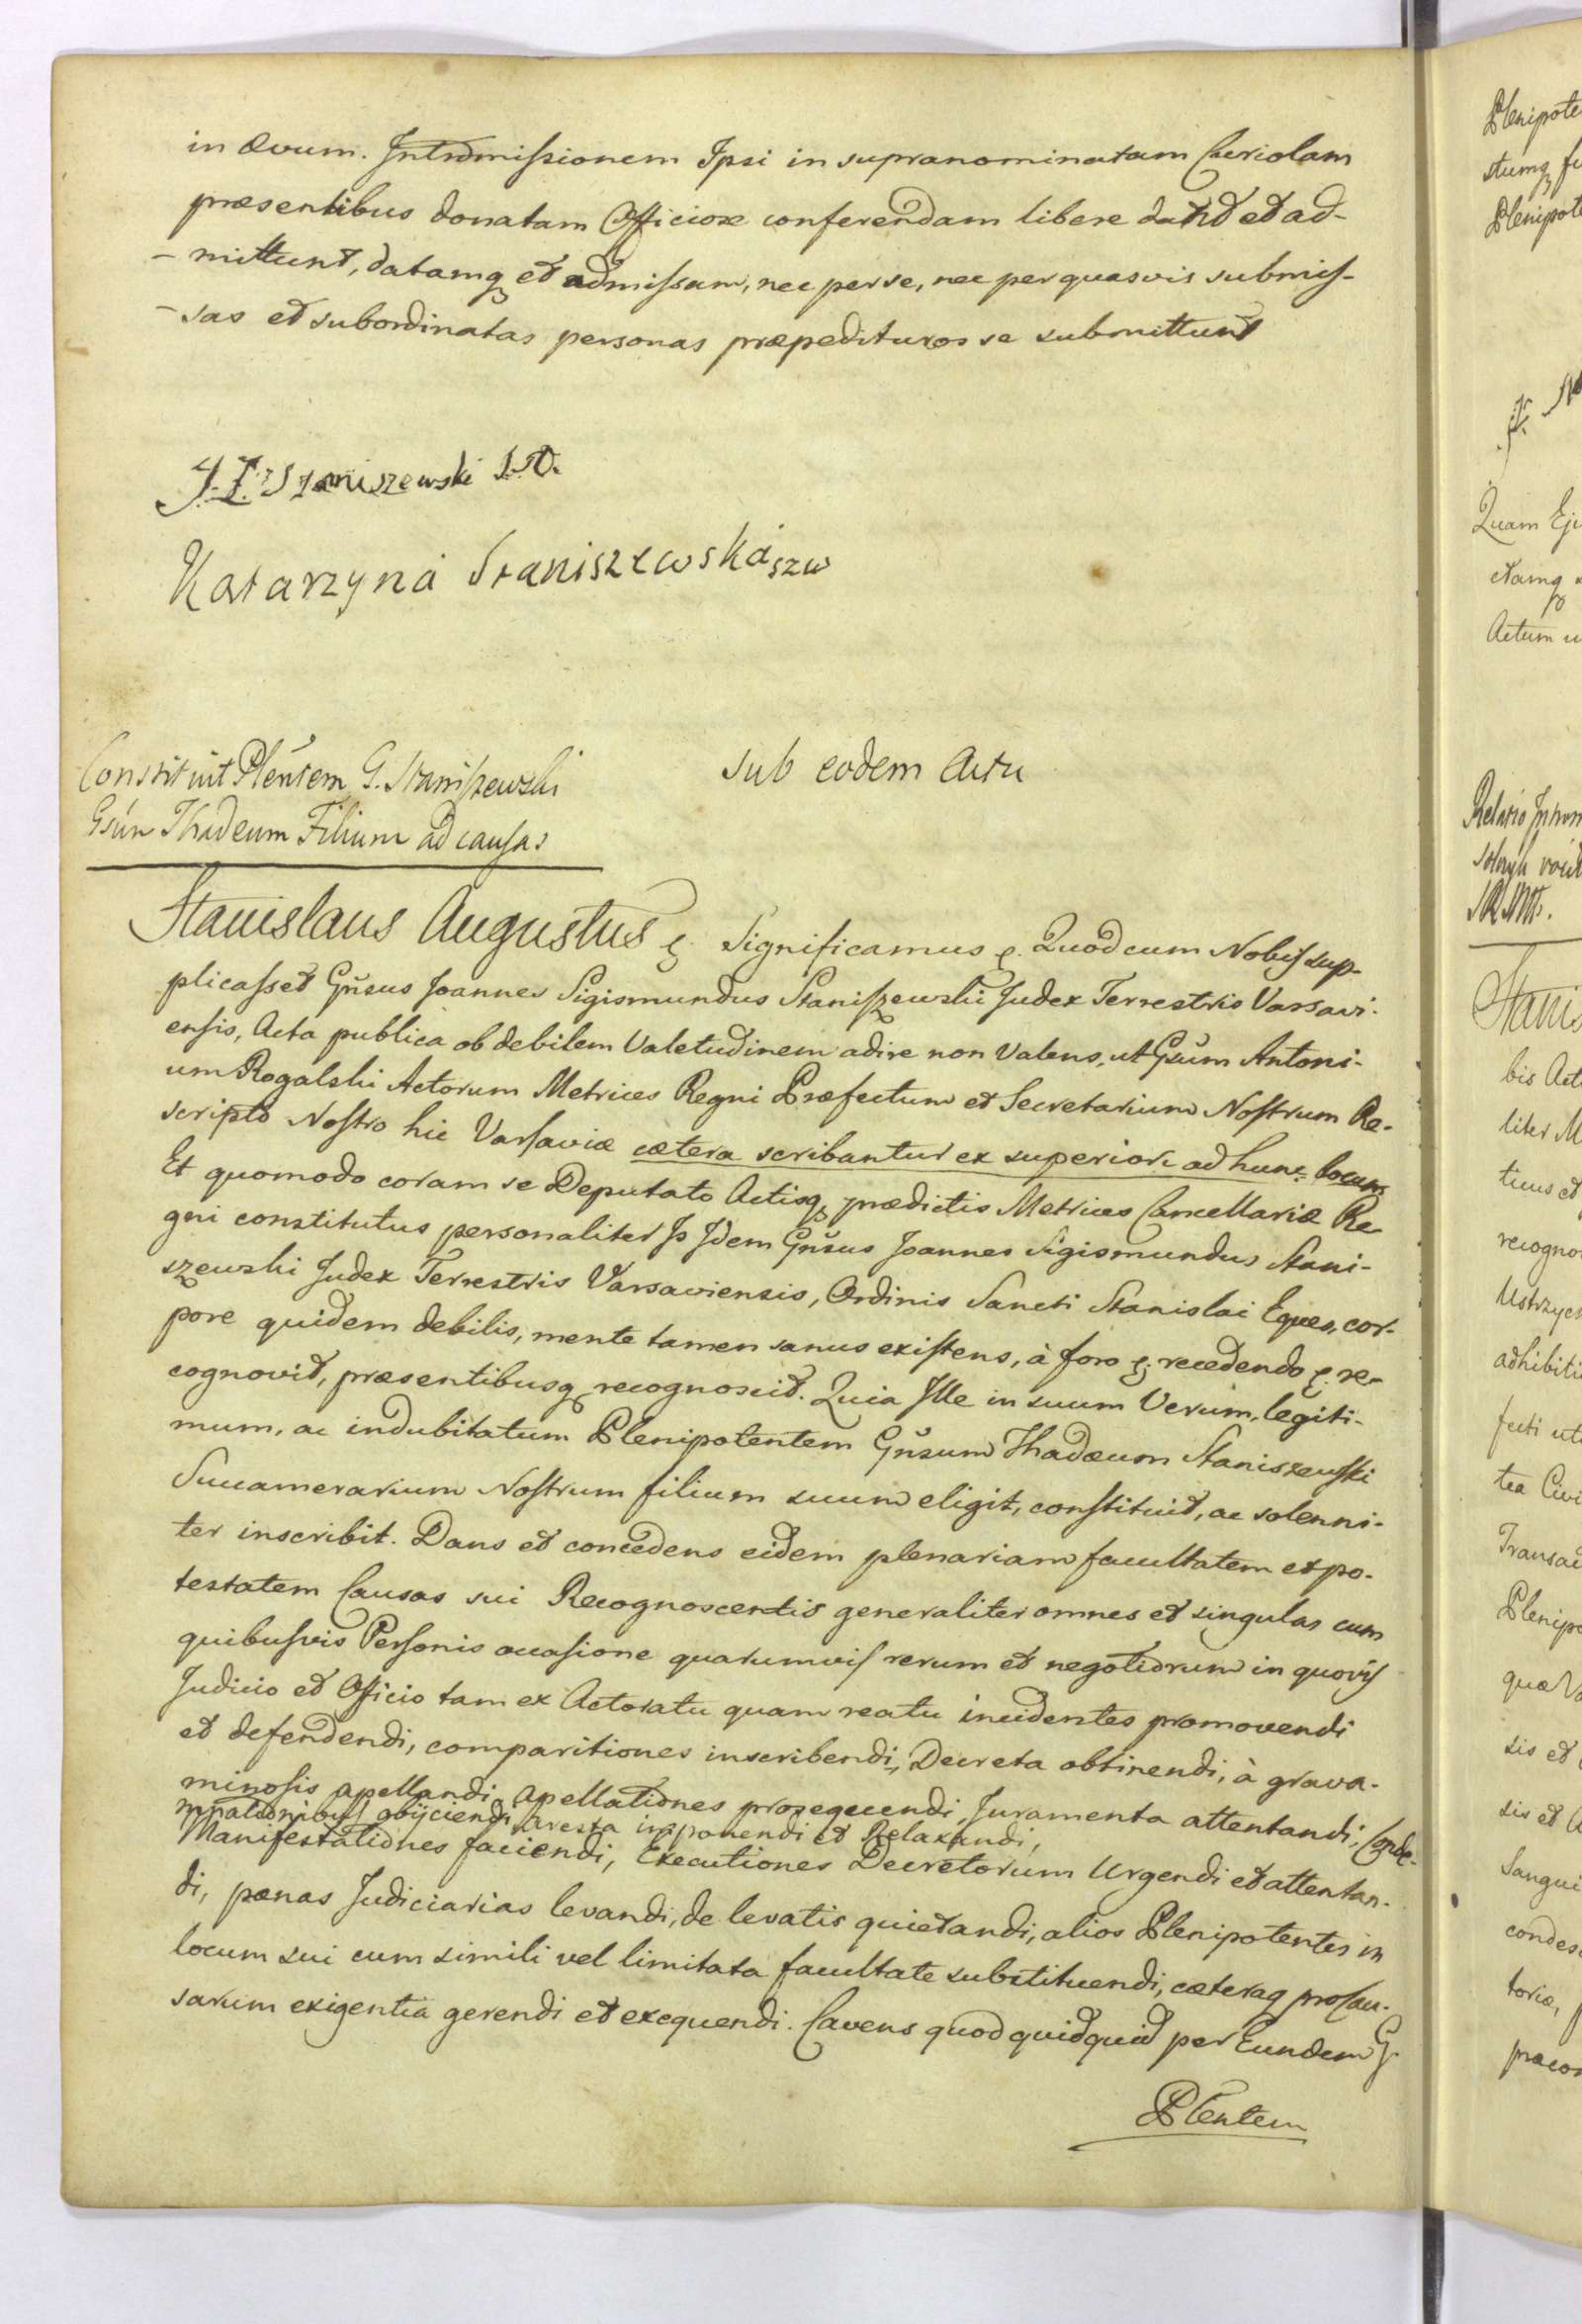 in ævum. Intromissionem Ipsi in supranominatam Curiolam
præsentibus donatam Officiose conferendam libere dant et ad-
- mittunt, datamq et admissam, nec per se, nec per quasvis submis-
- sas et subordinatas personas præpedituros se submittunt
J. Z. Staniszewski S.
Katarzyna Staniszewska szw
Constituit Plentem G. Staniszewski
Gsun Thadeum Filium ad causas
Sub eodem Actu
Stanislaus Augustus &. Significamus &. Quod cum Nobis sup-
plicasset Gnsus Joannes Sigismundus Staniszewski Judex Terrestris Varsavi-
ensis, Acta publica ob debilem Valetudinem adire non Valens, ut Gsum Antoni-
um Rogalski Actorum Metrices Regni Præfectum et Secretarium Nostrum Re-
scripto Nostro hic Varsaviæ cætera scribantur ex superiori ad hunc locum
Et quomodo coram se Deputato Actisq prædictis Metrices Cancellariæ Re
gni constitutus personaliter Idem Gnsus Joannes Sigismundus Stani-
szewski Judex Terrestris Varsaviensis, Ordinis Sancti Stanislai Eques, cor-
pore quidem debilis, mente tamen sanus existens, à foro &. recedendo &. re-
cognovit, præsentibusq recognoscit. Quia Ille in suum Verum, legiti-
mum, ac indubitatum Plenipotentem Gnsum Thadæum Staniszewski
Succamerarium Nostrum filium suum eligit, constituit, ac solenni-
ter inscribit. Dans et concedens eidem plenariam facultatem et po-
testatem Causas sui Recognoscentis generaliter omnes et singulas cum
quibusvis Personis occasione quarumvis rerum et negotiorum in quovis
Judicio et Officio tam ex Actoratu quam reatu incidentes promovendi
et defendendi, comparitiones inscribendi, Decreta obtinendi, à grava-
minosis apellandi, apellationes prosequendi, Juramenta attentandi, Conde-
mnationibus obijciendi, Aresta imponendi et Relaxandi,
Manifestationes faciendi, Executiones Decretorum Urgendi et attentan-
di, pænas Judiciarias levandi, de levatis quietandi, alios Plenipotentes in
locum sui cum simili vel limitata facultate substituendi, cæteraq pro Cau-
sarum exigentia gerendi et exequendi. Cavens quod quidquid per Eundem G.
Plentem
Plenipote
Plenipot
Quam Ej
etamq
Actum u
Relatio
Stanis
bis Act
liter M
ticus et
recogno
Ustrzyc
adhibiti
fecti ut
tea Civi
Transac
Plenipo
quæ Va
sis et
sis et A
Sangui
condes
toriæ,
præcon